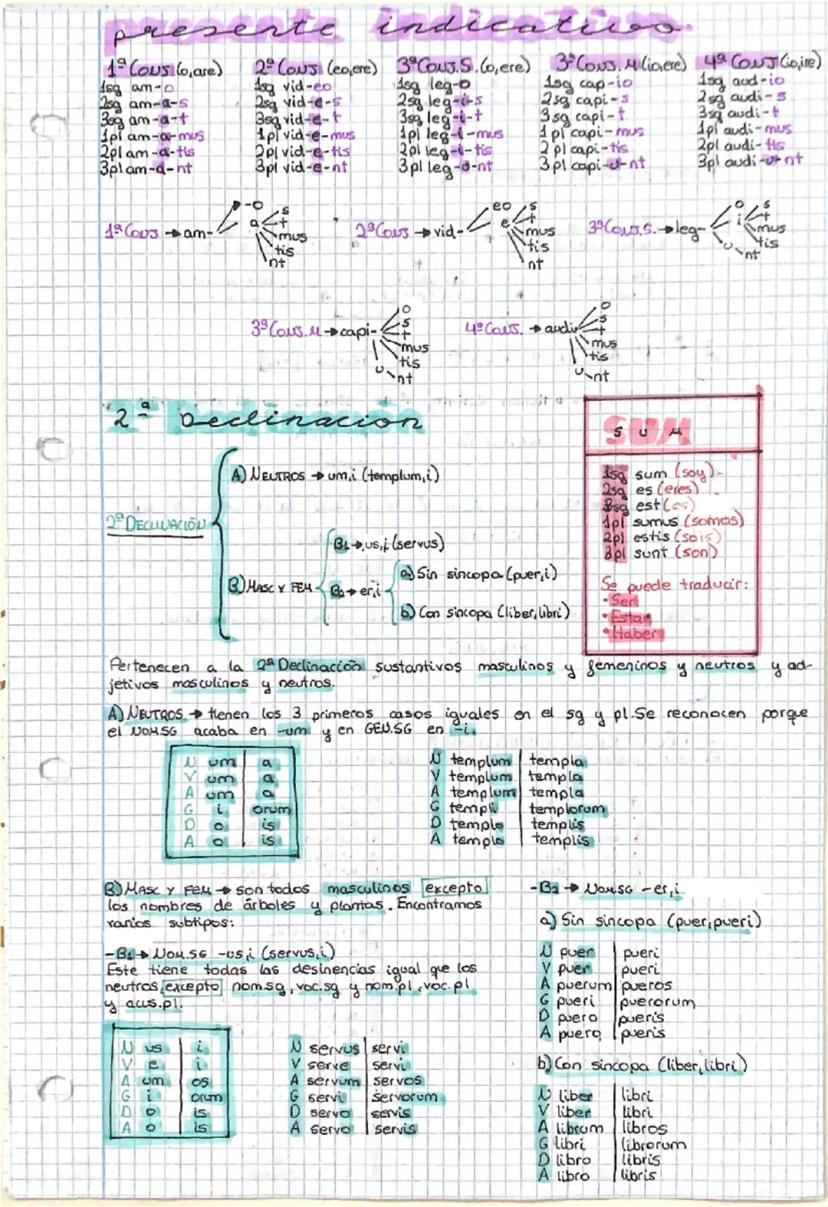 presente indicativo
1ª Conj (o,are)
1sg am-o
2sg am-a-s
3sg am-a-t
1pl am-a-mus
2pl am-a-tis
3pl am-a-nt
2ª Conj (eo,ere)
1sg vid-eo
2sg vid-e-s
3sg vid-e-t
1pl vid-e-mus
2pl vid-e-tis
3pl vid-e-nt
3ª Conj.S. (o,ere)
1sg leg-o
2sg leg-i-s
3sg leg-i-t
1pl leg-i-mus
2pl leg-i-tis
3pl leg-u-nt
3ª Conj.M (io,ere)
1sg cap-io
2sg capi-s
3sg capi-t
1pl capi-mus
2pl capi-tis
3pl capi-u-nt
4ª Conj (io,ire)
1sg aud-io
2sg audi-s
3sg audi-t
1pl audi-mus
2pl audi-tis
3pl audi-u-nt
1ª Conj → am-
-o
a
s
t
mus
tis
nt
2ª Conj → vid-
eo
e
s
t
mus
tis
nt
3ª Conj.S. → leg-
o
i
s
t
mus
tis
u nt
3ª Conj.M → capi-
o
s
t
mus
tis
u nt
4ª Conj. → audi
o
s
t
mus
tis
u nt
2ª Declinación
2ª Declinación
A) Neutros → um,i (templum,i)
B) Masc y Fem
B1 → us,i (servus)
B2 → er,i
a) Sin sincopa (puer,i)
b) Con sincopa (liber,libri)
SUM
1sg sum (soy)
2sg es (eres)
3sg est (es)
1pl sumus (somos)
2pl estis (sois)
3pl sunt (son)
Se puede traducir:
• Ser
• Estar
• Haber
Pertenecen a la 2ª Declinación sustantivos masculinos y femeninos y neutros y ad-
jetivos masculinos y neutros.
A) Neutros → tienen los 3 primeros casos iguales en el sg y pl. Se reconocen porque
el NOM.SG acaba en -um y en GEN.SG en -i.
N um a
V um a
A um a
G i orum
D o is
A o is
N templum templa
V templum templa
A templum templa
G templi templorum
D templo templis
A templo templis
B) Masc y Fem → son todos masculinos excepto
los nombres de árboles y plantas. Encontramos
varios subtipos:
-B1 → Nom.SG -us,i (servus,i)
Este tiene todas las desinencias igual que los
neutros, excepto nom.sg, voc.sg y nom.pl, voc.pl
y acus.pl.
N us i
V e i
A um os
G i orum
D o is
A o is
N servus servi
V serve servi
A servum servos
G servi servorum
D servo servis
A servo servis
-B2 → Nom.SG -er,i
a) Sin sincopa (puer,pueri)
N puer pueri
V puer pueri
A puerum pueros
G pueri puerorum
D puero pueris
A puero pueris
b) Con sincopa (liber,libri)
N liber libri
V liber libri
A librum libros
G libri librorum
D libro libris
A libro libris